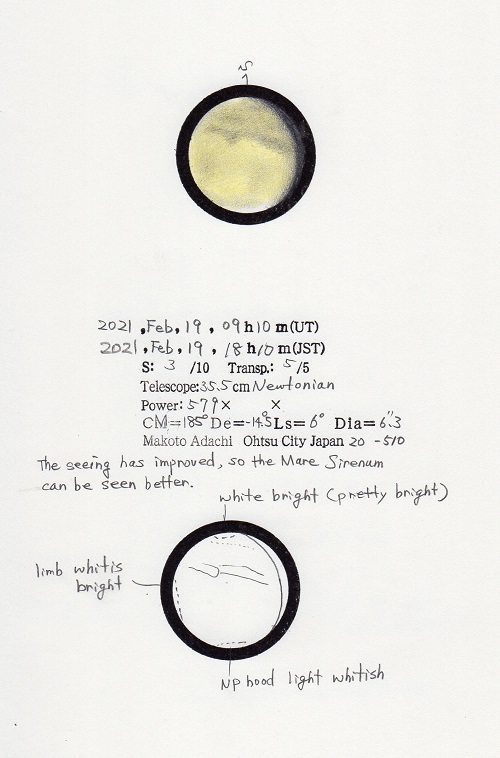 S
2021, Feb, 19, 09h10m(UT)
2021, Feb, 19, 18h10m(JST)
S: 3 /10 Transp.: 5/5
Telescope:35.5cm Newtonian
Power: 579× ×
CM=185° De=-14.5° Ls=6° Dia=6".3
Makoto Adachi Ohtsu City Japan 20 -510
The seeing has improved, so the Mare Sirenum
can be seen better.
white bright (pretty bright)
limb whitis
bright
NP hood light whitish